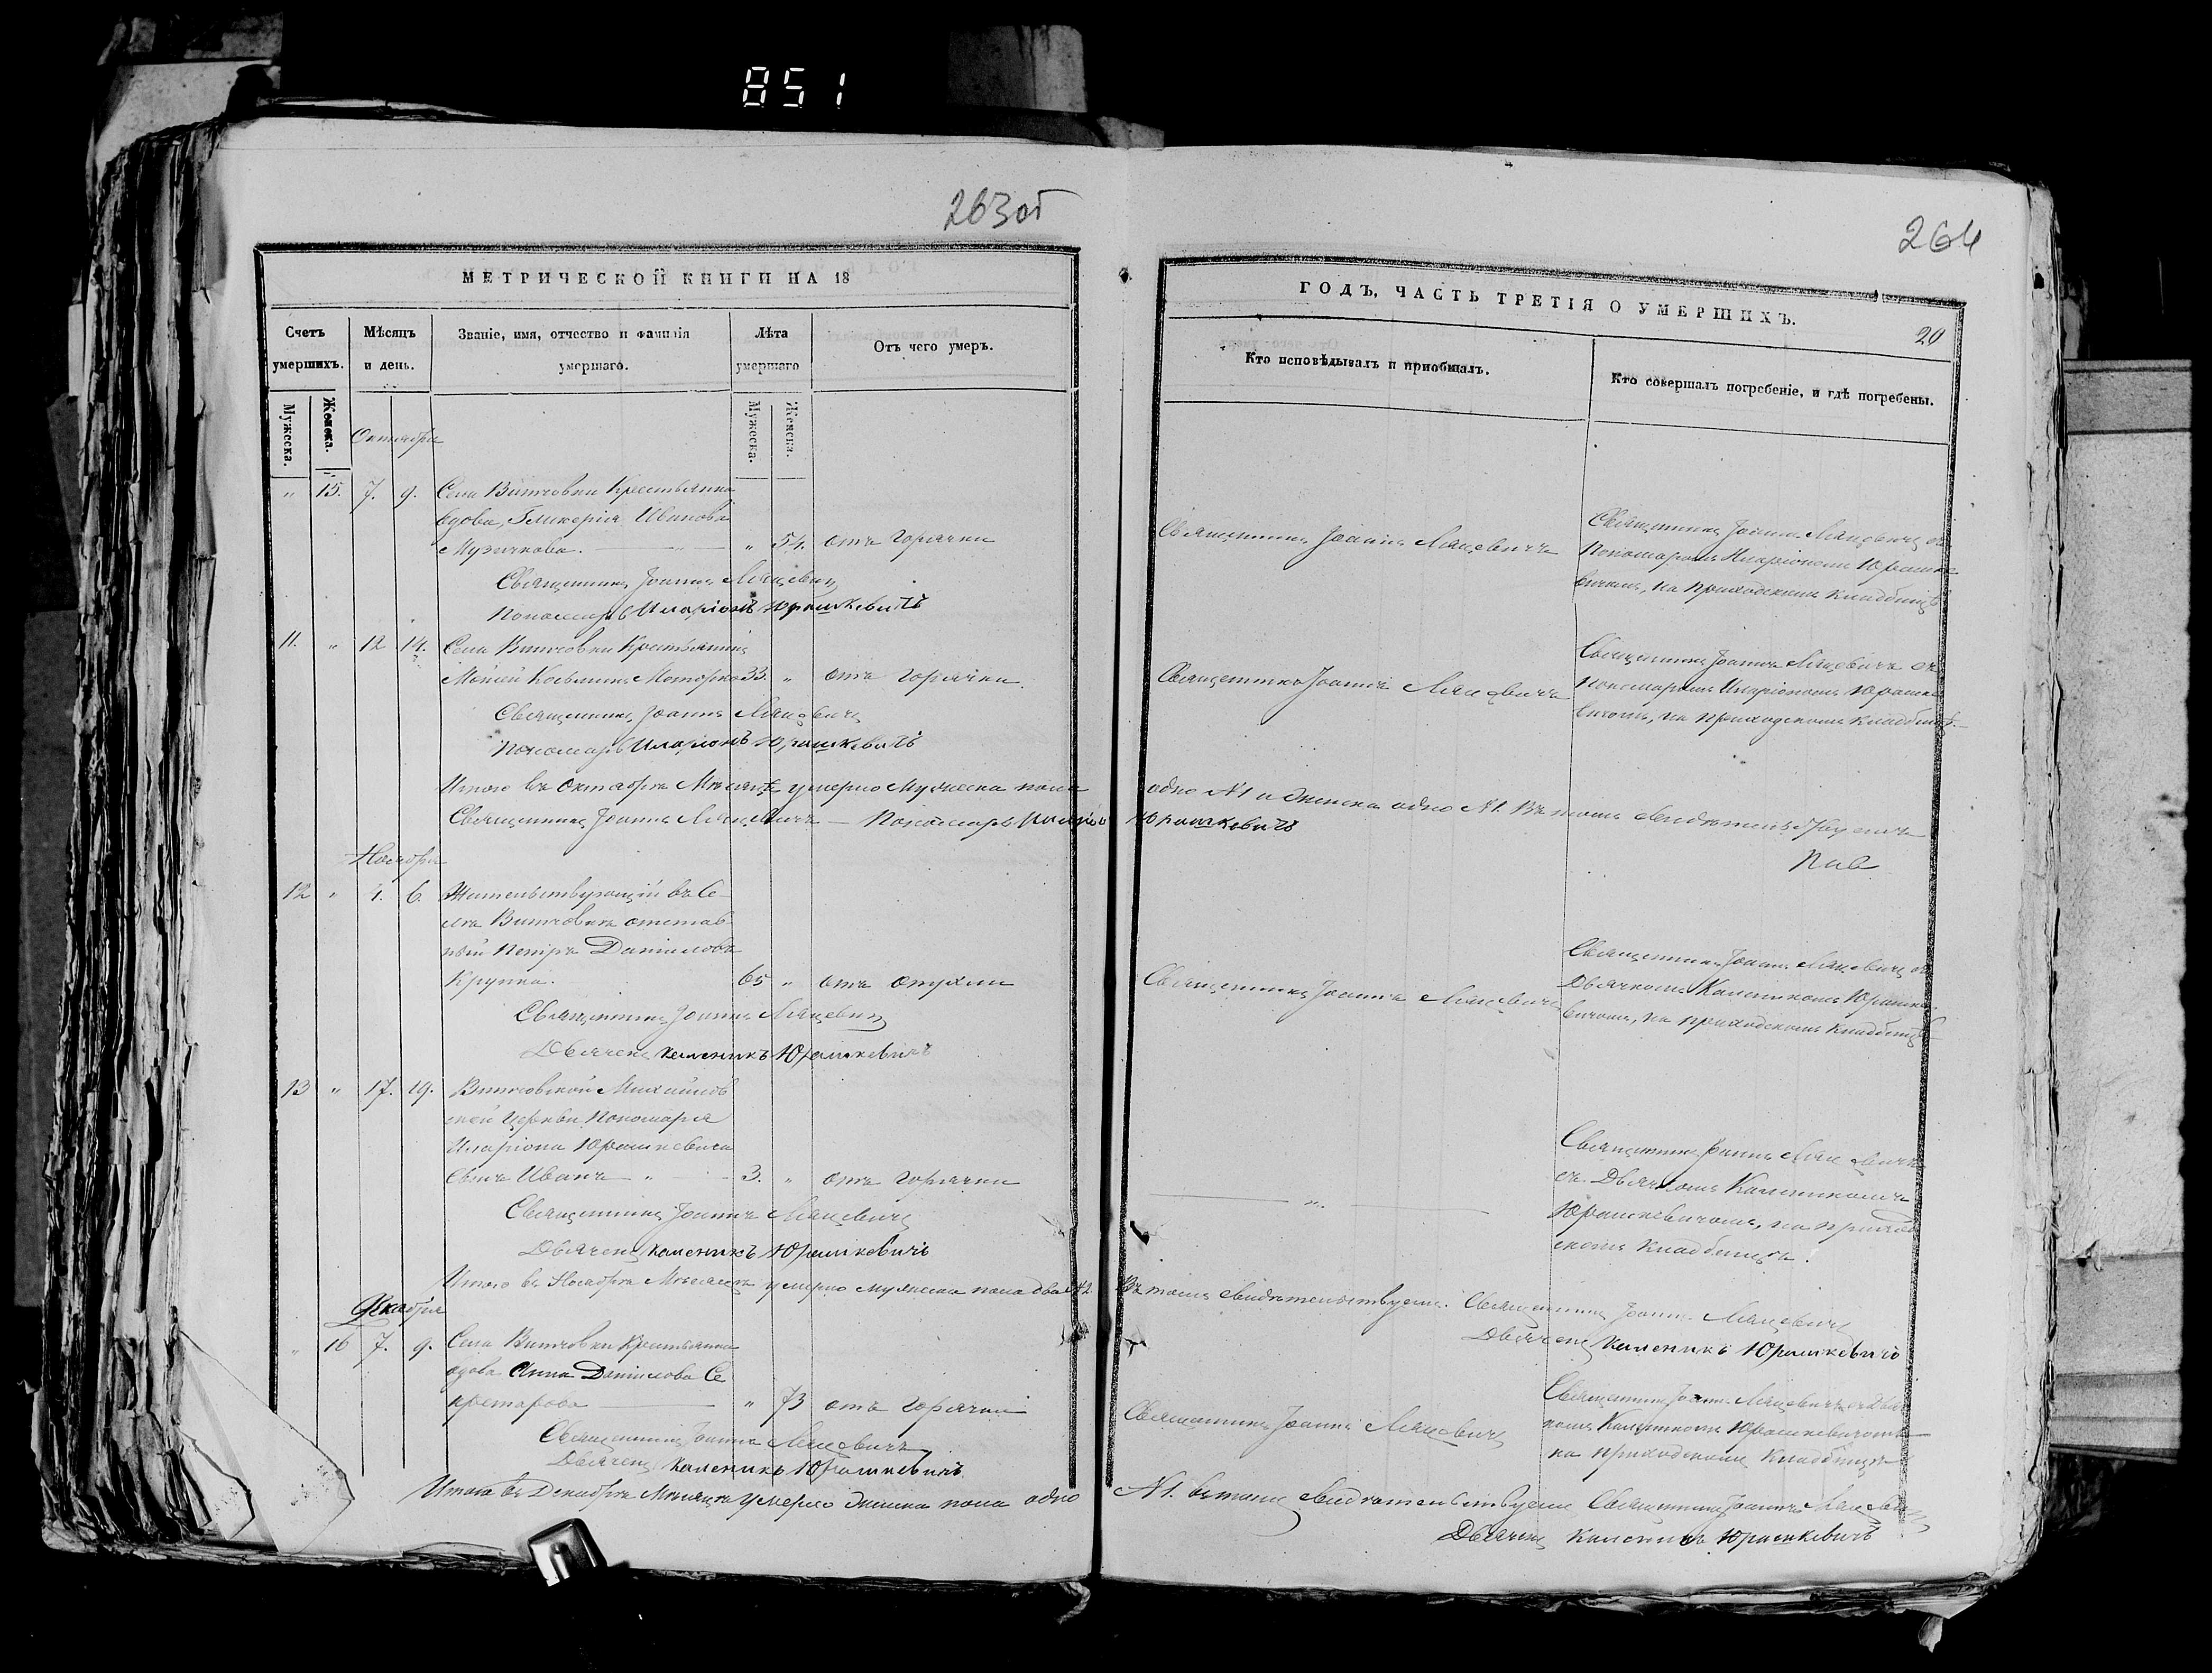 851
263об
264
МЕТРИЧЕСКОЙ КНИГИ НА 18
ГОДЪ, ЧАСТЬ ТРЕТІЯ О УМЕРШИХЪ.
20
Счетъ умершихъ.
Мѣсяцъ и день.
Званіе, имя, отчество и фамилія умершаго.
Лѣта умершаго
Отъ чего умеръ.
Кто исповѣдывалъ и пріобщалъ.
Кто совершалъ погребеніе, и гдѣ погребены.
Мужеска.
Женска.
Мужеска.
Женска.
Октября
" 15. 7. 9. Села Витчовки Крестьянка
вдова, Гликерія Иванова
Музычкова. " 54. отъ горячки
Священникъ Іоаннъ Мацевичъ
Священникъ Іоаннъ Мацевичъ съ
Пономаремъ Иларіономъ Юрашке
вичемъ, на приходскомъ кладбищѣ
Священникъ Іоаннъ Мацевичъ
Пономарь Иларіонъ Юрашкевичъ
11. " 12 14. Села Витчовки Крестьянинъ
Козьминъ 33. " отъ горячки.
Священникъ Іоаннъ Мацевичъ
Священникъ Іоаннъ Мацевичъ съ
Пономаремъ Иларіономъ Юрашке
вичемъ, на приходскомъ кладбищѣ.
Священникъ Іоаннъ Мацевичъ
Пономарь Иларіонъ Юрашкевичъ
Итого въ Октябрѣ Мѣсяцѣ умерло Мужеска пола
одно №1 и женска одно №1. Въ томъ свидѣтельствуемъ
Священникъ Іоаннъ Мацевичъ — Пономарь Иларіонъ
Юрашкевичъ
Ноября
12 " 4. 6. Жительствующій въ Се
лѣ Витчовкѣ отстав
ный Петръ Даниловъ
Крупка. 65 " отъ опухли
Священникъ Іоаннъ Мацевичъ
Священникъ Іоаннъ Мацевичъ съ
Дьячкомъ Каленикомъ Юрашке
вичемъ, на приходскомъ кладбищѣ
Священникъ Іоаннъ Мацевичъ
Дьячекъ Каленикъ Юрашкевичъ
13 " 17. 19. Витчовской Михайлов
ской Церкви Пономаря
Иларіона Юрашкевича
сынъ Иванъ " 3. " отъ горячки
"
Священникъ Іоаннъ Мацевичъ
съ Дьячкомъ Каленикомъ
Юрашкевичемъ, на приход
скомъ кладбищѣ.
Священникъ Іоаннъ Мацевичъ
Дьячекъ Каленикъ Юрашкевичъ
Итого въ Ноябрѣ Мѣсяцѣ умерло мужеска пола два №2
Въ томъ свидѣтельствуемъ. Священникъ Іоаннъ Мацевичъ
Дьячекъ Каленикъ Юрашкевичъ
Декабря
" 16 7. 9. Села Витчовки Крестьянка
вдова Анна Данилова Се
" 73 отъ горячки
Священникъ Іоаннъ Мацевичъ
Священникъ Іоаннъ Мацевичъ съ Дьяч
комъ Каленикомъ Юрашкевичемъ
на приходскомъ кладбищѣ
Священникъ Іоаннъ Мацевичъ
Дьячекъ Каленикъ Юрашкевичъ
Итого въ Декабрѣ Мѣсяцѣ умерло женска пола одно
№1. въ томъ свидѣтельствуемъ Священникъ Іоаннъ Мацевичъ
Дьячекъ Каленикъ Юрашкевичъ